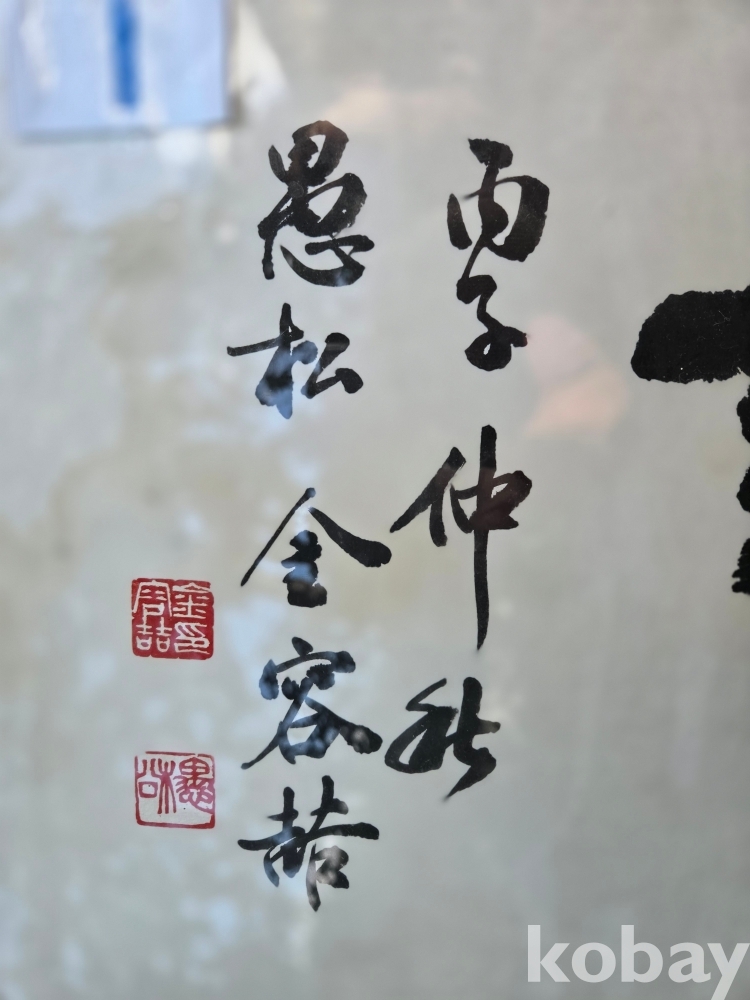 丙子 仲秋
愚松 金容喆
金容
喆印
愚松
kobay